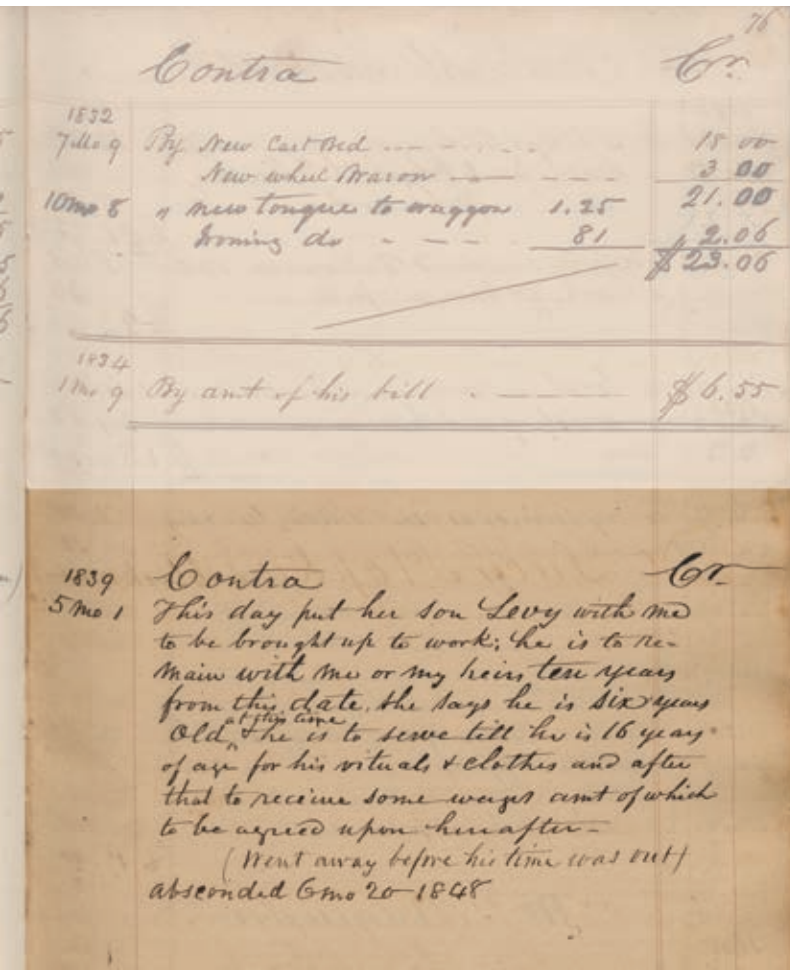 76
Contra Cr.
1832
7 Mo 9 By New Cart Bed 18 00
New wheel Barow 3 00
10 mo 8 " new tongue to waggon 1.25 21.00
Ironing do 81 2.06
$23.06
1834
1 Mo 9 By amt of his bill $6.55
1839 Contra Cr.
5 mo 1 This day put her son Levy with me
to be brought up to work; he is to re-
main with me or my heirs ten years
from this date. She says he is six years
at this time
Old, & he is to serve till he is 16 years
of age for his vituals & clothes and after
that to receive some wages amt of which
to be agreed upon hereafter-
(Went away before his time was out)
absconded 6 mo 20 1848